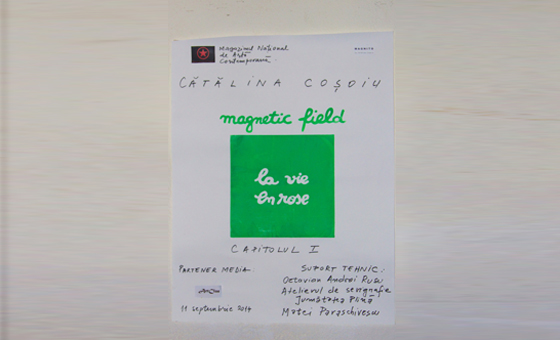 Magazinul Național
de Artă
Contemporană
CĂTĂLINA COȘOIU
magnetic field
la vie
en rose
CAPITOLUL I
PARTENER MEDIA
11 septembrie 2014
SUPORT TEHNIC:
Octavian Andrei Rusu
Atelierul de serigrafie
Jumătatea Plină
Matei Paraschivescu